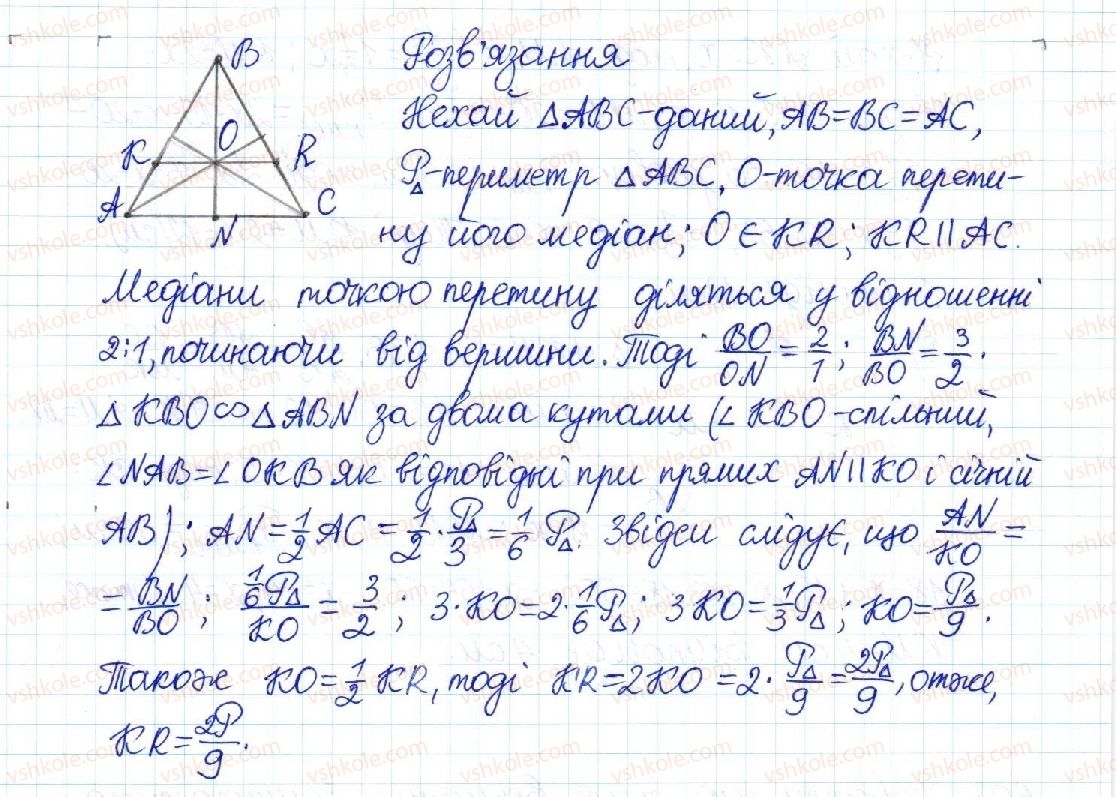 B
Розв'язання
O
Нехай △ABC-даний, AB=BC=AC,
K R
P△-периметр △ABC, O-точка перети-
A C
N
ну його медіан; O∈KR; KR||AC.
Медіани точкою перетину діляться у відношенні
2:1, починаючи від вершини. Тоді BO/ON = 2/1; BN/BO = 3/2.
△KBO∽△ABN за двома кутами (∠KBO-спільний,
∠NAB=∠OKB як відповідні при прямих AN||KO і січній
AB); AN = 1/2 AC = 1/2 · P△/3 = 1/6 P△. Звідси слідує, що AN/KO =
= BN/BO; 1/6 P△/KO = 3/2; 3·KO=2·1/6 P△; 3KO=1/3 P△; KO=P△/9.
Також KO=1/2 KR, тоді KR=2KO =2·P△/9=2P△/9, отже,
KR=2P/9.